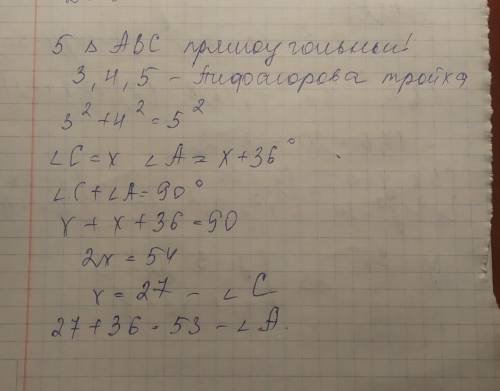 5 Δ ABC прямоугольный!
3, 4, 5 - Пифагорова тройка
3² + 4² = 5²
∠C = x ∠A = x + 36°
∠C + ∠A = 90°
x + x + 36 = 90
2x = 54
x = 27 - ∠C
27 + 36 = 53 - ∠A.